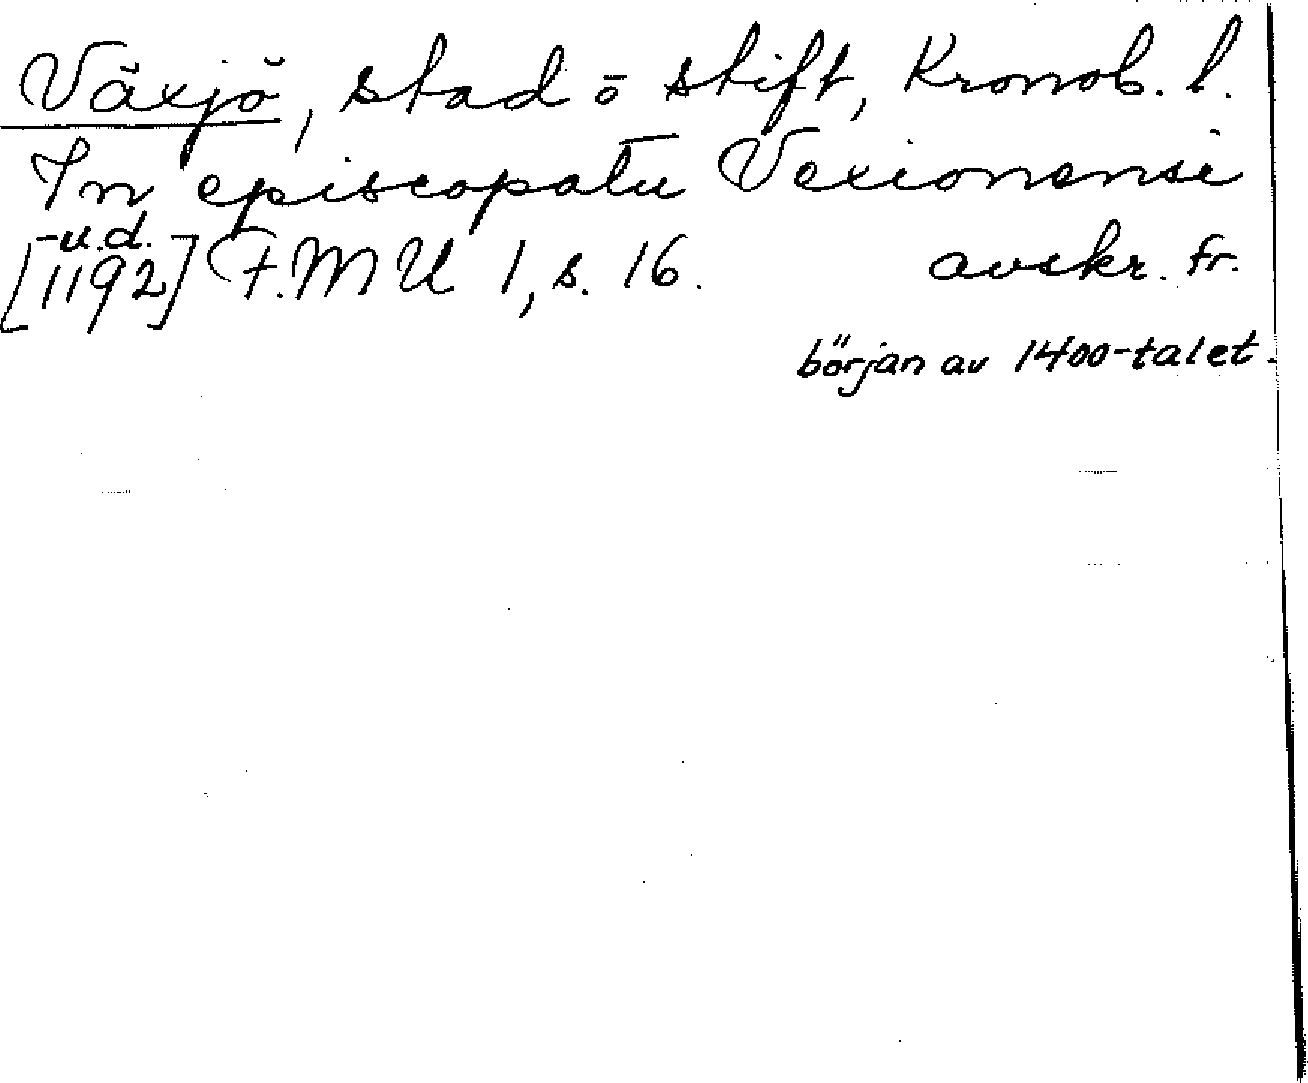 Växjö, stad o stift, Kronob. l.
In episcopatu Vexionensi
-u.d.
[1192] F.M U 1, s. 16. avskr. fr.
början av 1400-talet.